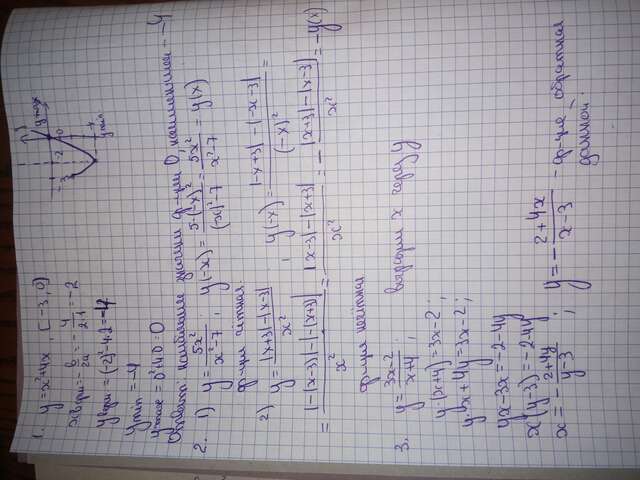 1. y=x²+4x, [-3,0)
x верш = -b/2a = -4/2·1 = -2
y верш = (-2)²+4·2=-4
y min = -4
y max = 0²+4·0=0
наибольшее значение ф-ции 0, наименьшее - -4
2. 1) y = 5x²/x²-7 ; y(-x) = 5·(-x)²/(-x)²-7 = 5x²/x²-7 = y(x)
2) y = |x+3|-|x-3|/x² ; y(-x) = |-x+3|-|-x-3|/(-x)² =
= |-(x-3)|-|-(x+3)|/x² = |x-3|-|x+3|/x² = - |x+3|-|x-3|/x² = -y(x)
3. y = 3x-2/x+4 ; x через y
y·(x+4)=3x-2;
y·x+4y=3x-2;
yx-3x=-2-4y
x(y-3)=-2-4y
x = - 2+4y/y-3 ; y = - 2+4x/x-3 - ф-ция, обратная
данной.